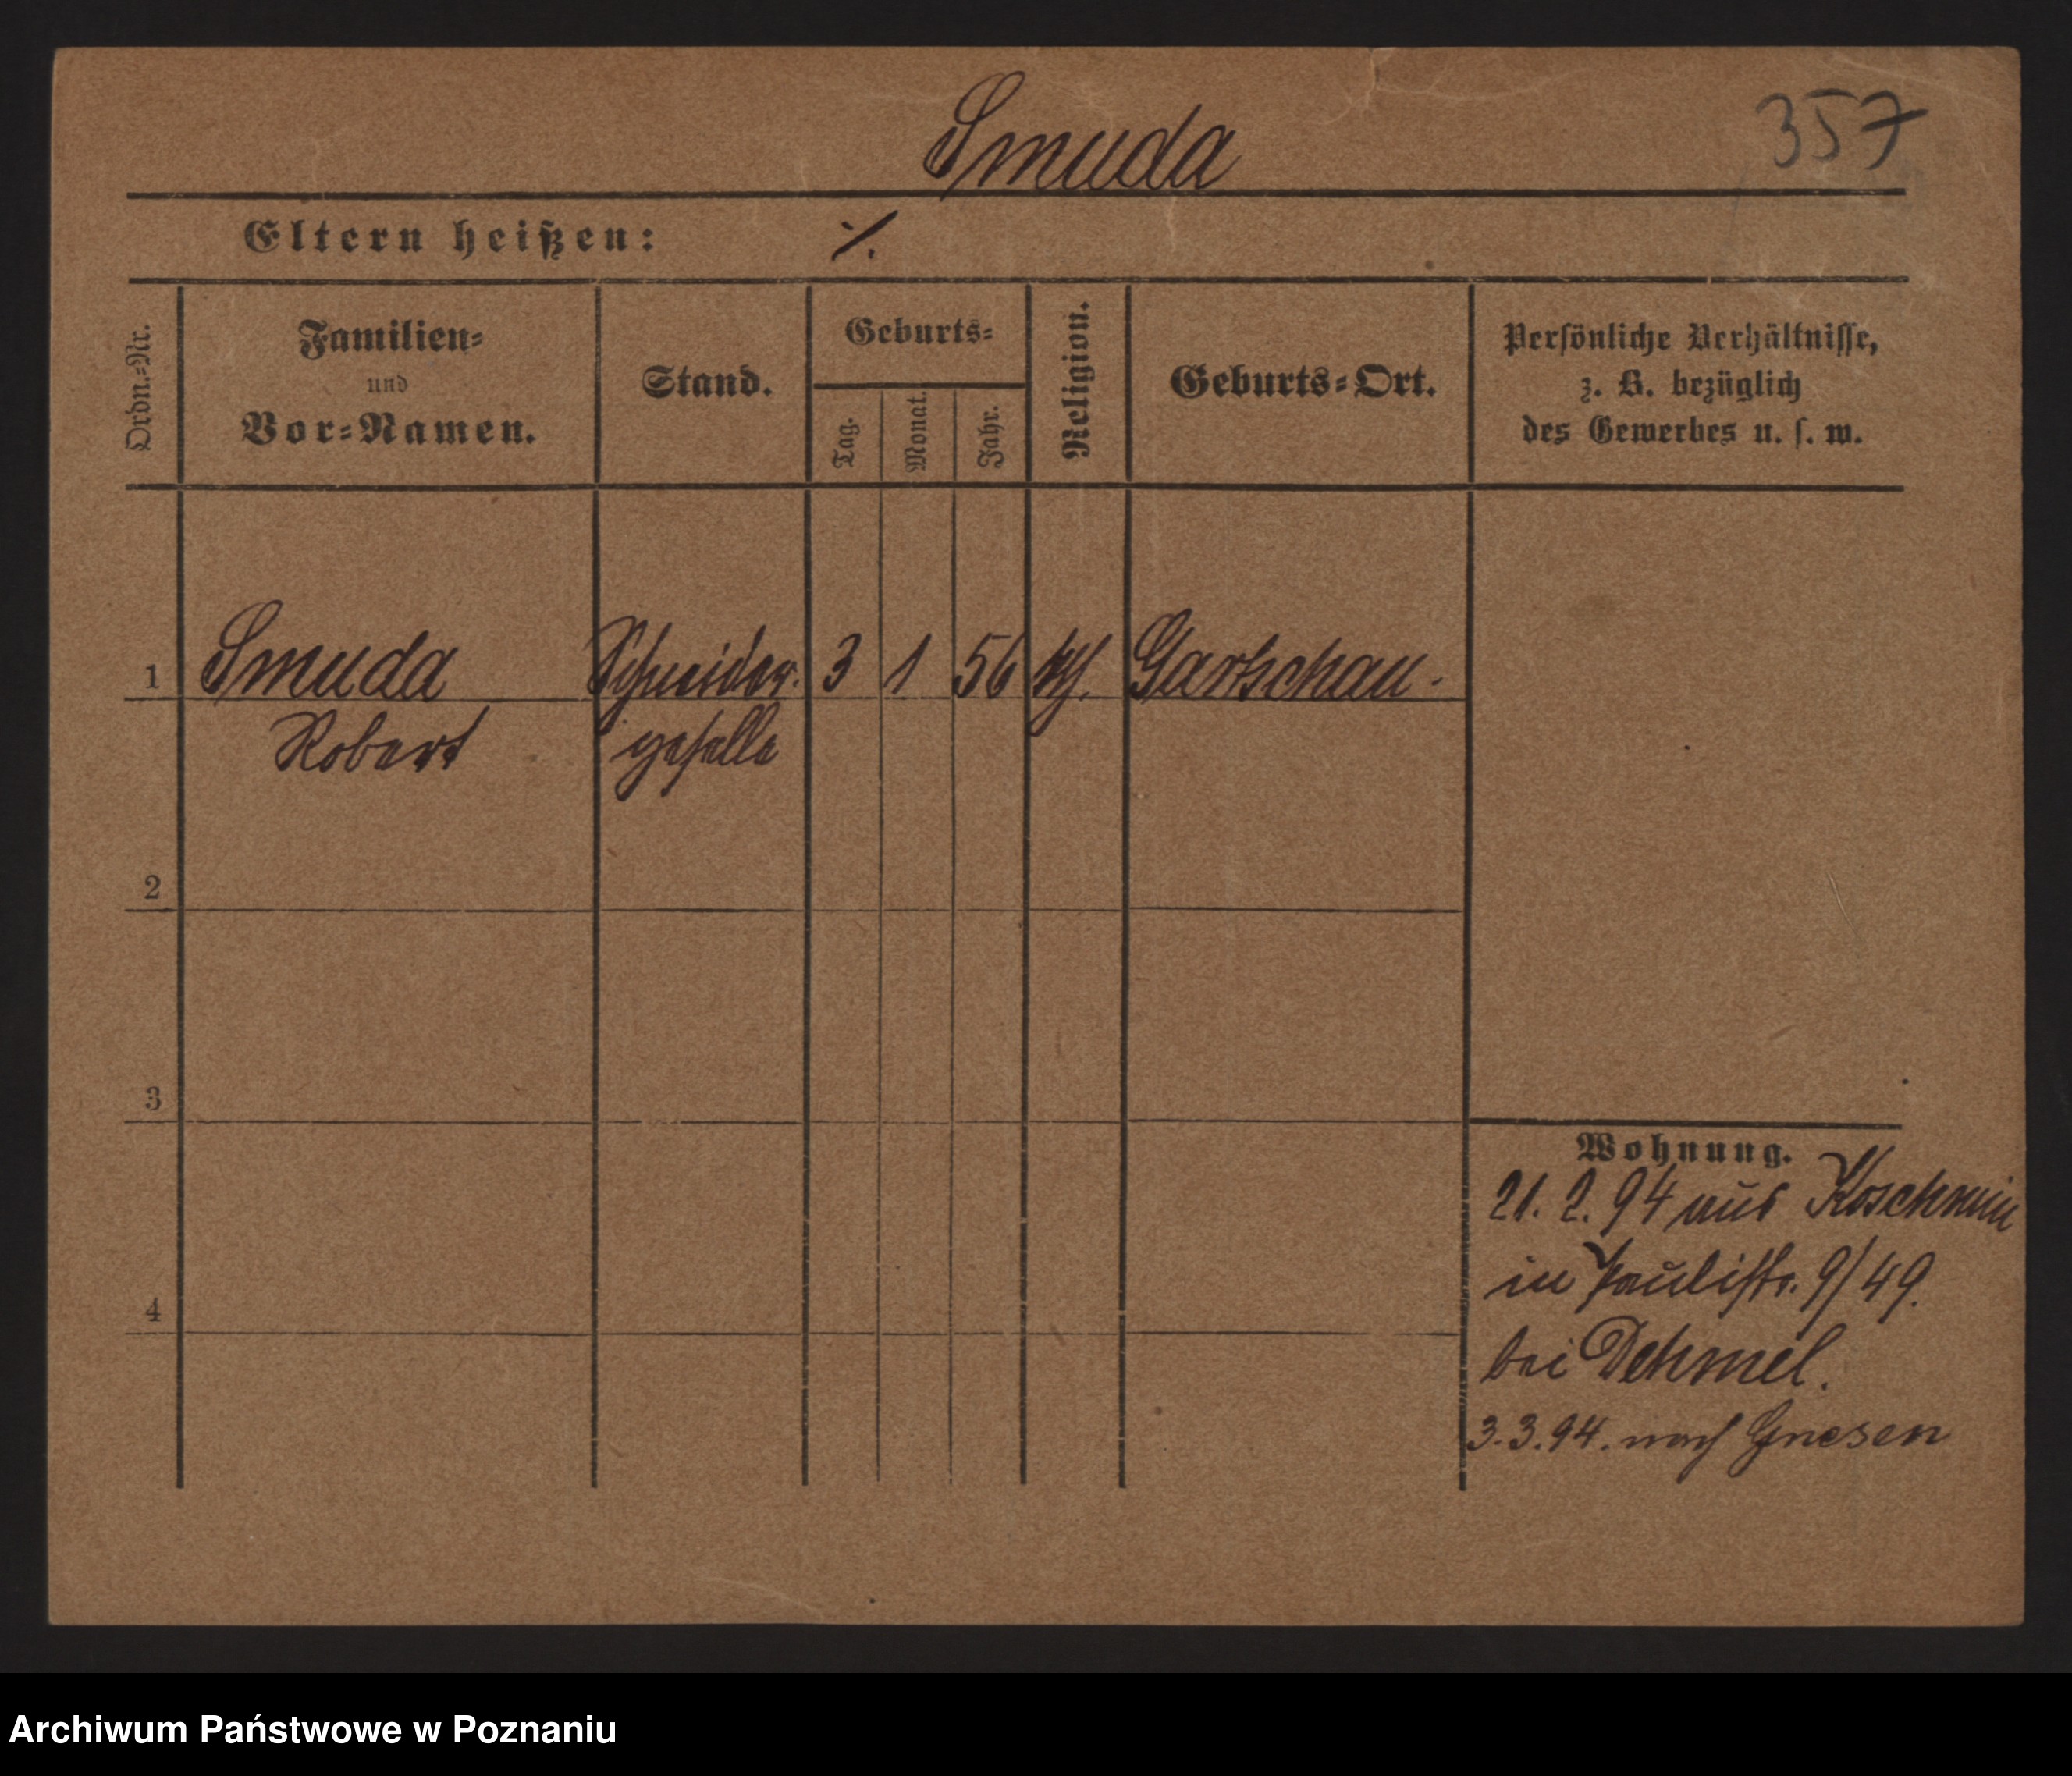 Smuda
357
Eltern heißen: ./.
Ordn.-Nr.
Familien-
und
Vor-Namen.
Stand.
Geburts-
Tag.
Monat.
Jahr.
Religion.
Geburts-Ort.
Persönliche Verhältnisse,
z. B. bezüglich
des Gewerbes u. s. w.
1 Smuda Schneider- 3 1 56 kth. Gartschau.
Robert geselle
2
3
4
Wohnung.
21. 2. 94 aus Koschmin
in Paulistr. 9/49.
bei Dehmel.
3.3.94. nach Gnesen
Archiwum Państwowe w Poznaniu